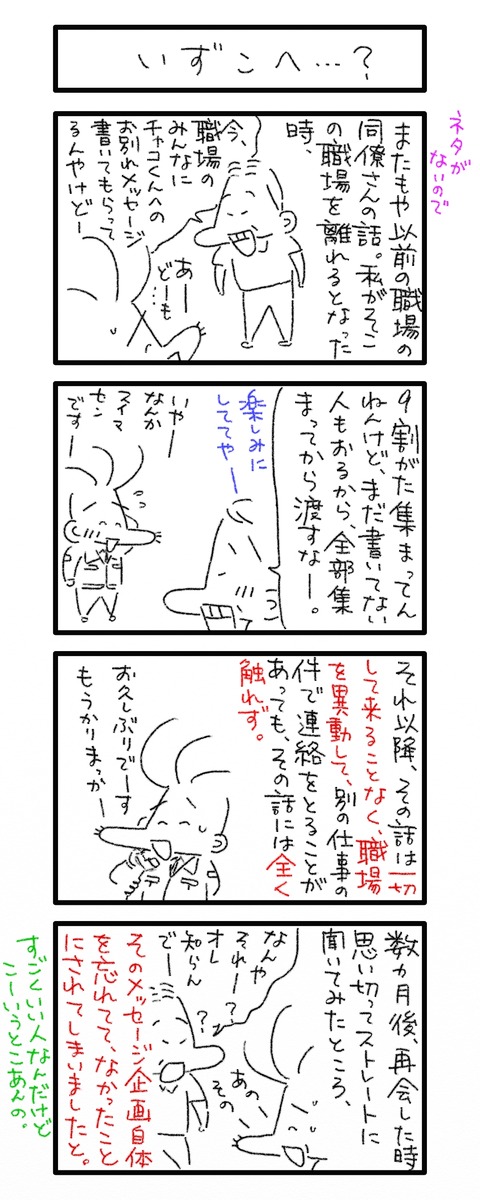 いずこへ…？
ネタが
ないので
またもや以前の職場の
同僚さんの話。私がそこ
の職場を離れるとなった
時、
今、
職場の
みんなに
チャコくんへの
お別れメッセージ
書いてもらって
るんやけどー
あー
どーも
…
9割がた集まってん
ねんけど、まだ書いてない
人もおるから、全部集
まってから渡すなー。
楽しみに
しててやー
いやー
なんか
スイマ
セン
ですー
それ以降、その話は一切
して来ることなく、職場
を異動して、別の仕事の
件で連絡をとることが
あっても、その話には全く
触れず。
お久しぶりでーす
もうかりまっかー
数カ月後、再会した時
思い切ってストレートに
聞いてみたところ、
なんや
それー？
オレ
知らん
でー
？
あのー
その
そのメッセージ企画自体
を忘れてて、なかったこと
にされてしまいましたと。
すごくいい人なんだけど
こーいうとこあんの。